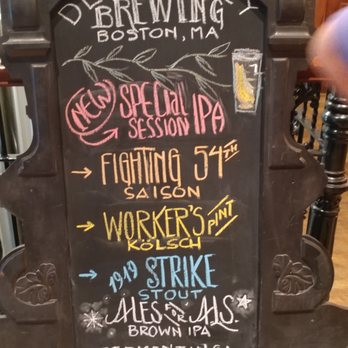 BREWING
BOSTON, MA
NEW SPECIAL
SESSION IPA
→ FIGHTING 54TH
SAISON
→ WORKER'S PINT
KÖLSCH
→ 1919 STRIKE
STOUT
ALES FOR ALS
BROWN IPA